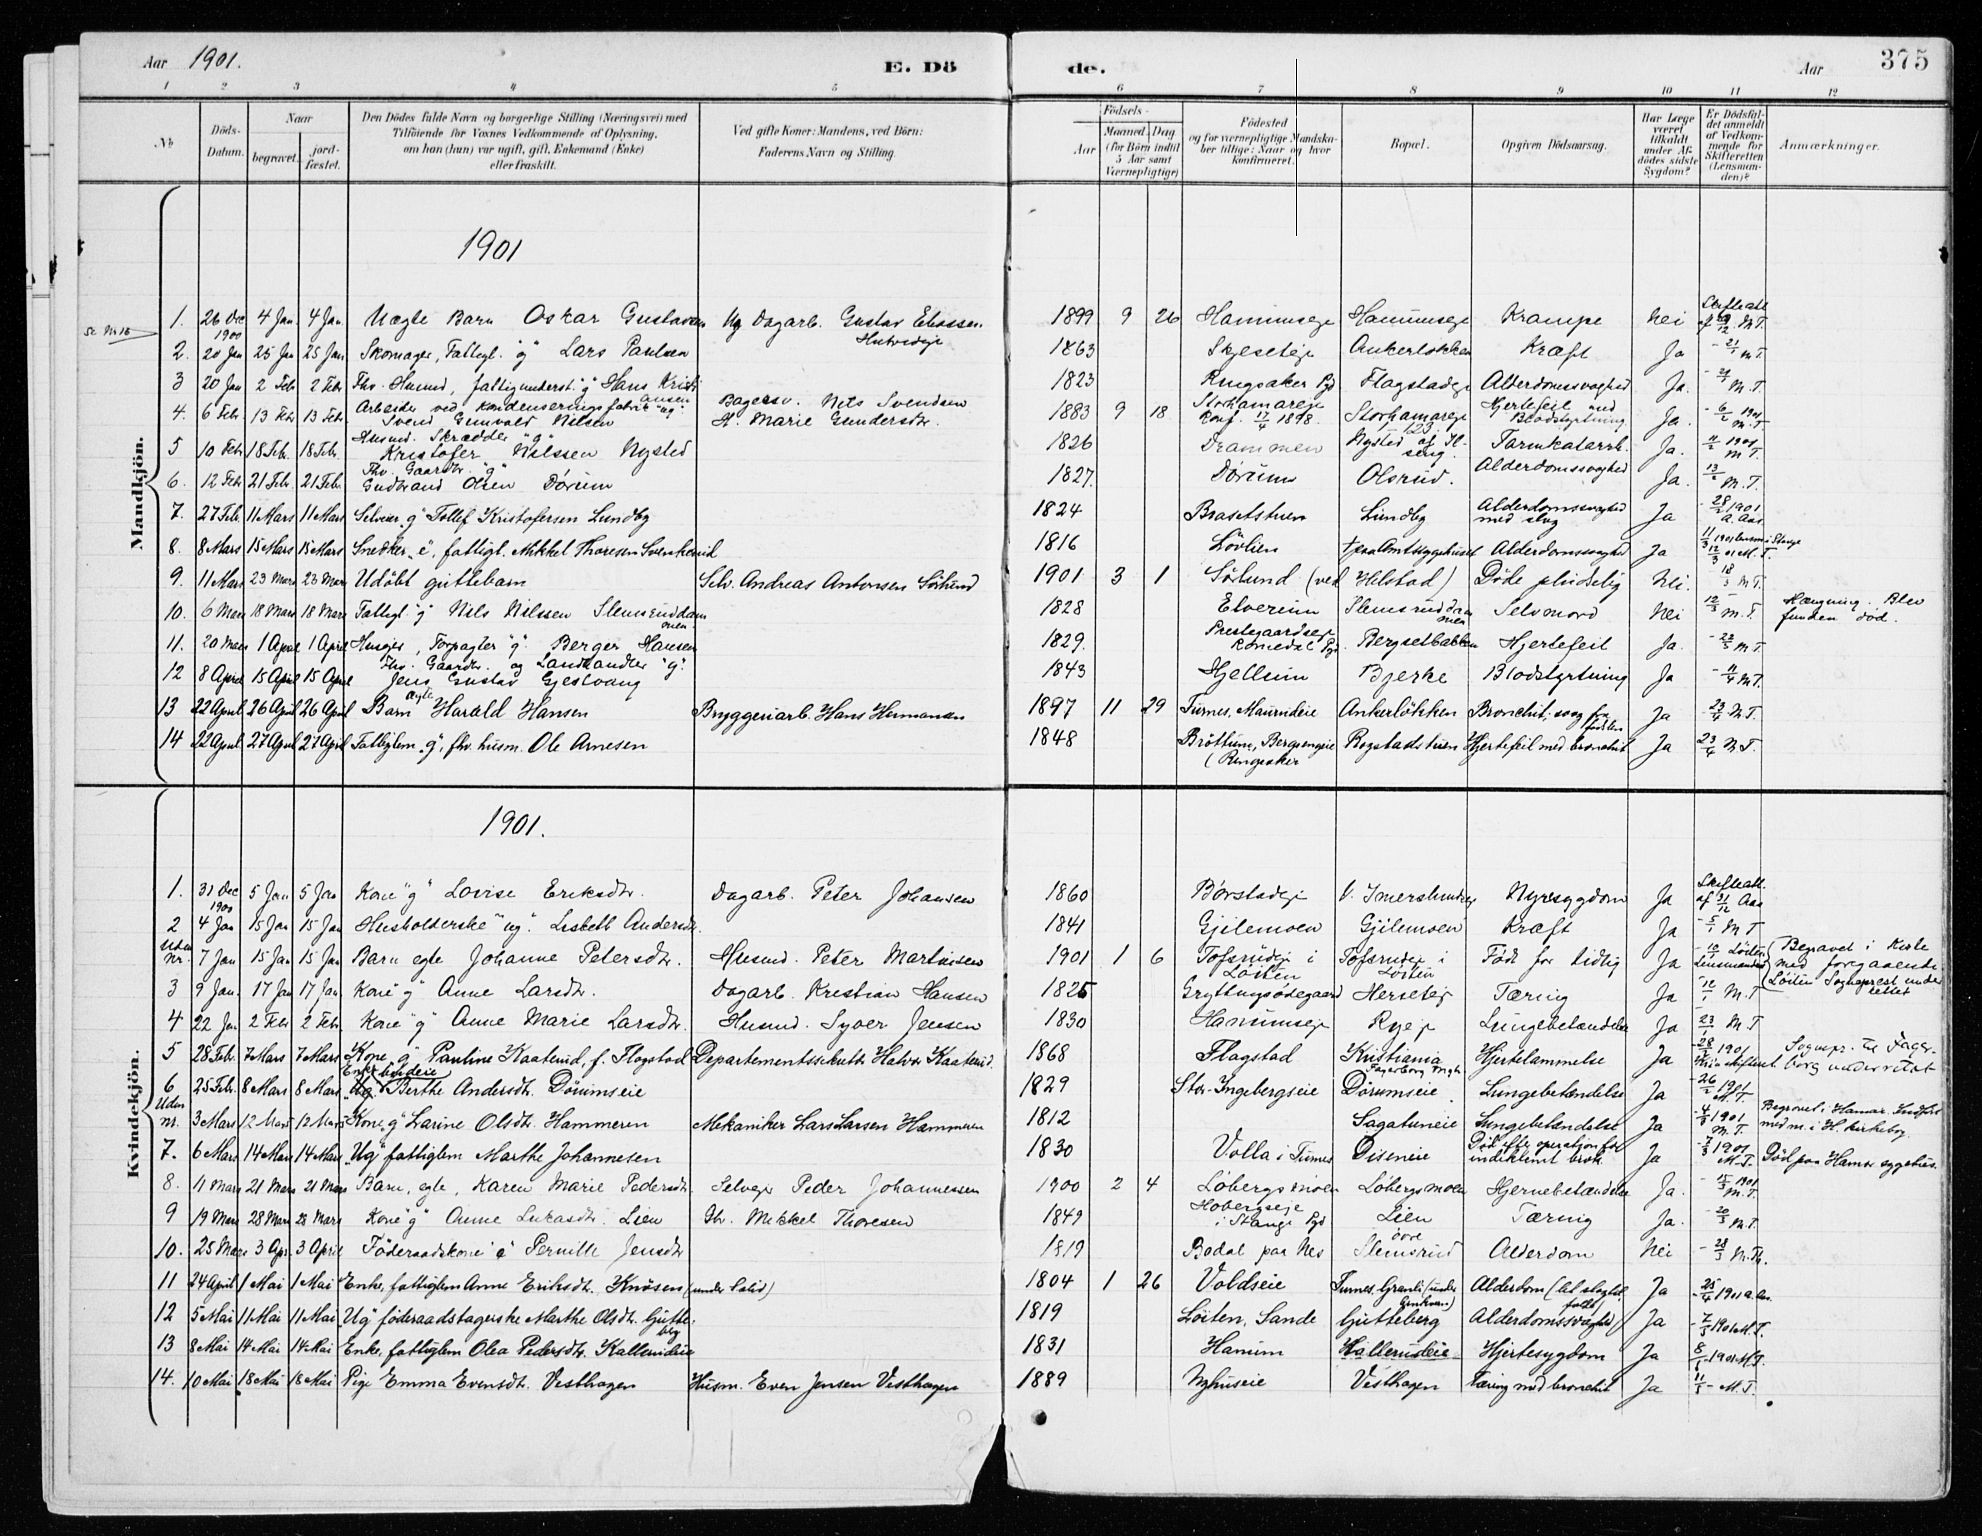 Aar 1901.
E. Dö
de.
Aar
375
1 2 3 4 5 6 7 8 9 10 11 12
No
Döds-Datum.
Naar
begravet.
jordfæstet.
Den Dödes fulde Navn og borgerlige Stilling (Næringsvei) med Tilföiende for Voxnes Vedkommende af Oplysning, om han (hun) var ugift, gift, Enkemand (Enke) eller fraskilt.
Ved gifte Koner: Mandens, ved Börn: Faderens Navn og Stilling.
Födsels-
Aar
Maaned Dag (for Börn indtil 5 Aar samt Værnepligtige)
Födested og for værnepligtige Mandskaber tillige: Naar og hvor konfirmeret.
Bopæl.
Opgiven Dödsaarsag.
Har Læge været tilkaldt under Afdödes sidste Sygdom?
Er Dödsfaldet anmeldt af Vedkommende for Skifteretten (Lensmanden)?
Anmærkninger.
Mandkjön.
1901
1. 26 Dec 1900 4 Jan 4 Jan Uægte Barn Oskar Gustavsen Ug Dagarb. Gustav Eliassen 1899 9 26 Hammseje Hammseje Krampe Nei Skifteatt. M.T.
2. 20 Jan 25 Jan 25 Jan Skomager, Fattigl. "g" Lars Paulsen 1863 Skjeseteje Ankerløkken Kræft Ja 21/1 M.T.
3 20 Jan 2 Feb 2 Feb Fhv. Husmd, fattigunderst. "g" Hans Kristiansen 1823 Ringsaker Pgd Flagstadeje Alderdomssvaghed Ja. M.T.
4. 6 Feb. 13 Feb 13 Feb Arbeider ved Kondenseringsfabrik "ug" Svend Gunvald Nilsen Bagersv. Nils Svendsen H. Marie Gundersdtr. 1883 9 18 Storhamareje Konf. 17/4 1898. Storhamareje 123 Hjertefeil med Blodstyrtning Ja. 6/2 1901 M.T
5 10 Feb 18 Feb. 18 Feb. Husmd. Skrædder "g" Kristofer Nilssen Nysted 1826 Drammen Nysted Tarmkatarrh. Ja. 11/2 1901 M.T.
6. 12 Feb 21 Feb. 21 Feb. Fhv. Gaardbr. "g" Gudbrand Olsen Dørum 1827. Dørum Olsrud. Alderdomssvaghed Ja. 13/2 M.T.
7. 27 Feb. 11 Mars 11 Mars Selveier "g" Tollef Kristofersen Lundby 1824 Lundby Alderdomssvaghed med slag Ja 28/2 1901 A. Aas
8. 8 Mars 15 Mars 15 Mars Snedker "e", fattigl. Mikkel Thoresen Svenkerud 1816 Lövlien † paa Amtssygehuset Alderdomssvaghed Ja 11/3 1901 Lensm. i Stange 12/3 01 M.T.
9. 11 Mars 23 Mars 23 Mars Udöbt guttebarn Selv. Andreas Antonsen Sörlund 1901 3 1 Sörlund (ved Hilstad) Döde pludselig Nei. 18/3 M.T.
10. 6 Mars 18 Mars 18 Mars Fattigl. "g" Nils Nilssen Slemsuddammen 1828 Elverum Slemsuddammen Selvmord Nei 12/3 M.T. Hængning. Blev funden död.
11. 20 Mars 1 April 1 April Husejer, Forpagter "g" Berger Hansen 1829. Prestegaardseje Romedal Pgd. Bergsetbakken Hjertefeil Ja. 22/3 M.T
12 8 April 15 April 15 April Fhv. Gaardbr. og Landhandler "g" Jens Gustav Gjestvang 1843 Hjellum Bjerke Blodstyrtning Ja 11/4 M.T.
13 22 April 26 April 26 April Barn ægte Harald Hansen Bryggeriarb. Hans Hermansen 1897 11 29 Furnes, Ankerlökken Bronchit; svag fra fødslen Ja 23/4 M.T.
14 22 April 27 April 27 April Fattiglem "g", fhv. husm. Ole Arnesen 1848 Bröttum, (Ringsaker Rogstadstuen Hjertefeil med bronchit Ja 23/4 M.T.
Kvindekjön.
1901.
1. 31 Dec 1900 5 Jan 5 Jan Kone "g" Lovise Eriksdtr. Dagarb. Peter Johansen 1860 Børstadeje V. Imerslundeje Nyresygdom Ja Skifteatt. af 31/12 Aas
2 4 Jan 15 Jan 15 Jan Husholderske "ug" Lisbeth Andersdtr. 1841 Gjilemoen Gjilemoen Kræft Ja 5/1 M.T
Uden nr. 7 Jan 15 Jan 15 Jan Barn egte Johanne Petersdtr. Husmd. Peter Martinsen 1901 1 6 Tofsrudeje i Löiten Tofsrudeje i Löiten Född for tidlig Ja 10/1 Löiten Lensmanden (Begravet i Kiste med foregaaende. (Löiten Sogneprest underrettet
3 9 Jan. 17 Jan 17 Jan. Kone "g" Anne Larsdtr. Dagarb. Kristian Hansen 1825 Gryttingsødegaard Herseteje Tæring Ja 12/1 M.T
4 22 Jan 2 Feb 2 Feb. Kone "g" Anne Marie Larsdtr. Husmd. Syver Jensen 1830 Hammseje Ryeje Lungebetændelse Ja 23/1 M.T
5 28 Feb. 7 Mars 7 Mars Kone "g" Pauline Kaaterud, f. Flagstad Departementssekretær Halvor Kaaterud. 1868 Flagstad Kristiania Fagerborg mgh. Hjertelammelse Ja 28/2 1901 Sognepr. til Fagerborg underrettet
6 25 Feb. 8 Mars 8 Mars Enke Berthe Andersdt. Dörumseie 1829 Stor-Ingebergseie Dörumseie Lungebetændelse Ja 26/2 1901 M.T.
Uden nr. 3 Mars 12 Mars 12 Mars Kone "g" Larine Olsdtr. Hammeren Mekaniker Lars Larsen Hammeren 1812 Sagatuneie Lungebetændelse Ja 4/3 1901 M.T. Begravet i Hamar. Indført med nr. i H. kirkebog.
7. 6 Mars 14 Mars 14 Mars "Ug" fattiglem Marthe Johannesen 1830 Volla i Furnes Diseneie Död efter operation for indeklemt brok Ja 7/3 1901 M.T. Död paa Hamar sygehus.
8. 11 Mars 21 Mars 21 Mars Barn, egte, Karen Marie Pedersdtr. Selvejer Peder Johannessen 1900 2 4 Løbergsmoen Løbergsmoen Hjernebetændelse Ja. 15/3 1901 M.T.
9 19 Mars 28 Mars 28 Mars Kone "g" Anne Lukasdtr. Lien Fhv. Mikkel Thoresen 1849 Hobergseje i Stange Pgd Lien Tæring Ja. 20/3 M.T.
10. 25 Mars 3 Apr. 3 April Föderaadskone "e" Pernille Jensdtr 1819 Bodal paa Nes övre Slemsrud Alderdom Nei 28/3 M.Th.
11 24 April 1 Mai 1 Mai Enke, fattiglem Anne Eriksdtr. Knösen (under Valid) 1804 1 26 Voldseie Furnes. Granli (under Alderdom Ja 25/4 1901 A. Aas.
12 5 Mai 11 Mai 11 Mai "Ug" föderaadstagerske Marthe Olsdtr. Gutteberg 1819 Löiten, Sande Gutteberg Alderdomssvaghed Ja 7/5 1901 M.T.
13 8 Mai 14 Mai 14 Mai Enke, fattiglem Olea Pedersdtr. Kallerudeie 1831 Hamum Kallerudeie Hjertesygdom Ja 8/5 1901 M.T.
14. 10 Mai 18 Mai 18 Mai Pige Emma Evensdt. Vesthagen Husm. Even Jensen Vesthagen 1889 Nyhuseie Vesthagen Tæring med bronchit Ja 11/5 M.T.